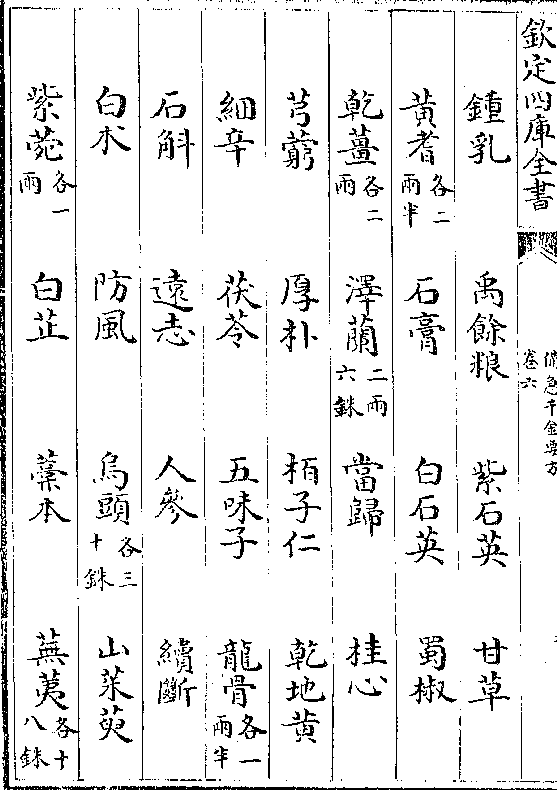 欽定四庫全書
備急千金要方
卷六
鍾乳 禹餘粮 紫石英 甘草
黃耆各二兩半 石膏 白石英 蜀椒
乾薑各二兩 澤蘭二兩六銖 當歸 桂心
芎藭 厚朴 栢子仁 乾地黃
細辛 茯苓 五味子 龍骨各一兩半
石斛 遠志 人參 續斷
白术 防風 烏頭各三十銖 山茱萸
紫菀各一兩 白芷 藁本 蕪荑各十八銖